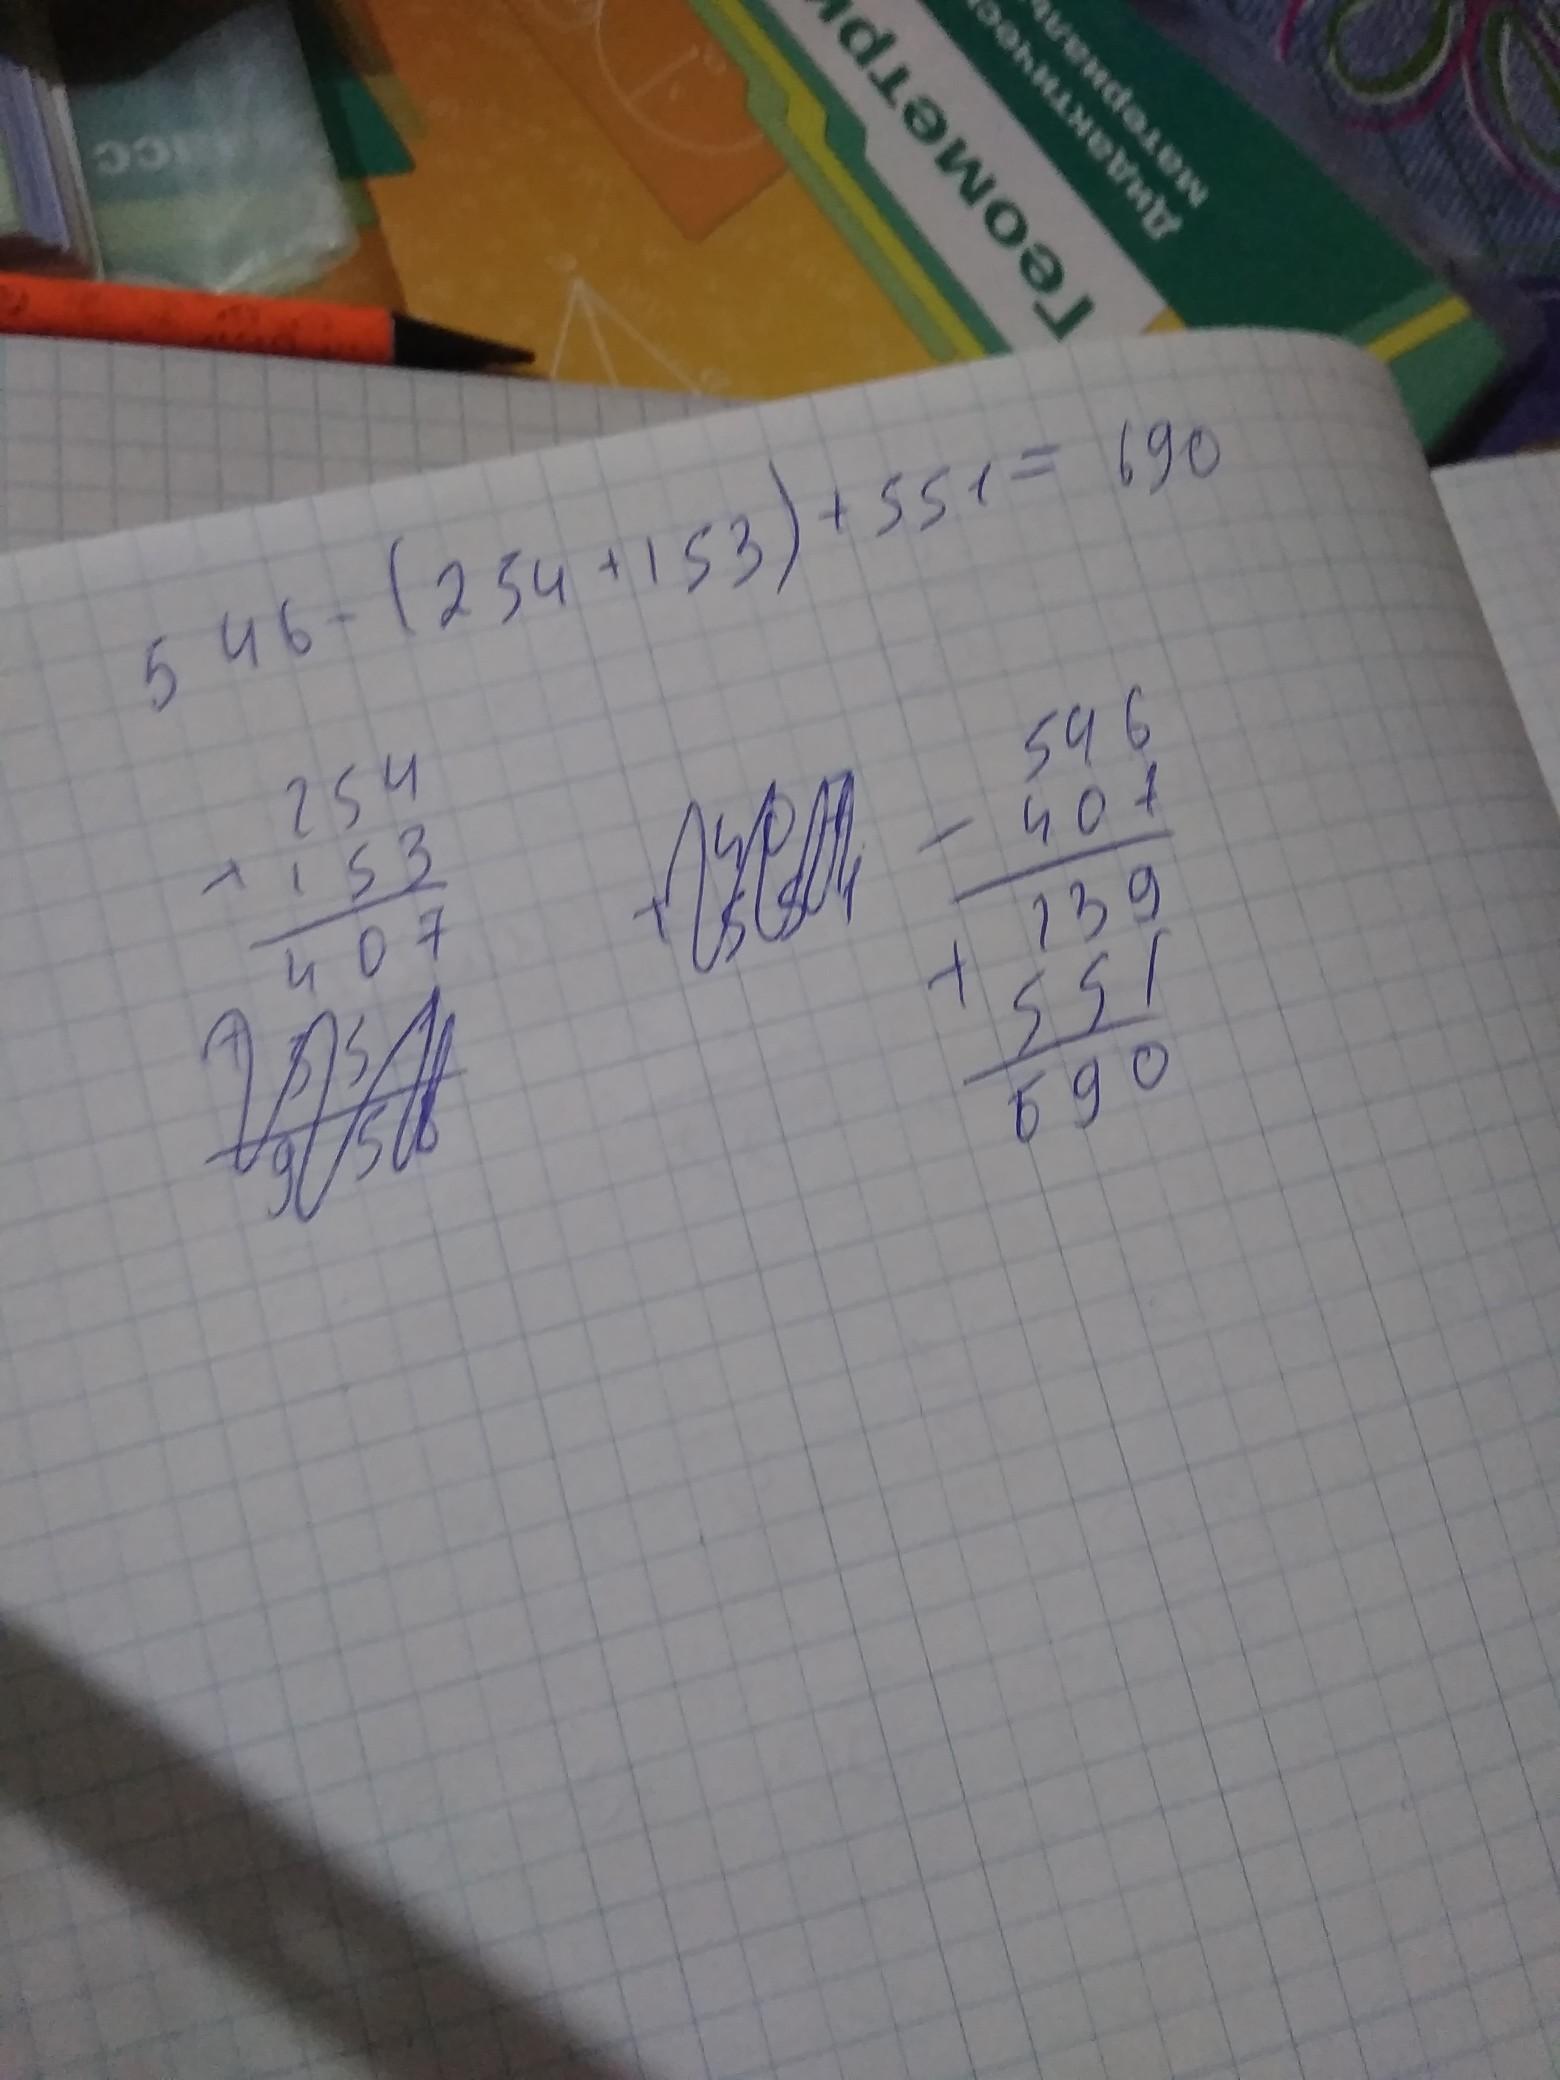 Геометри
Дидактичес
материалы
класс
546-(254+153)+551= 690
254
+ 153
407
546
- 407
139
+ 551
690